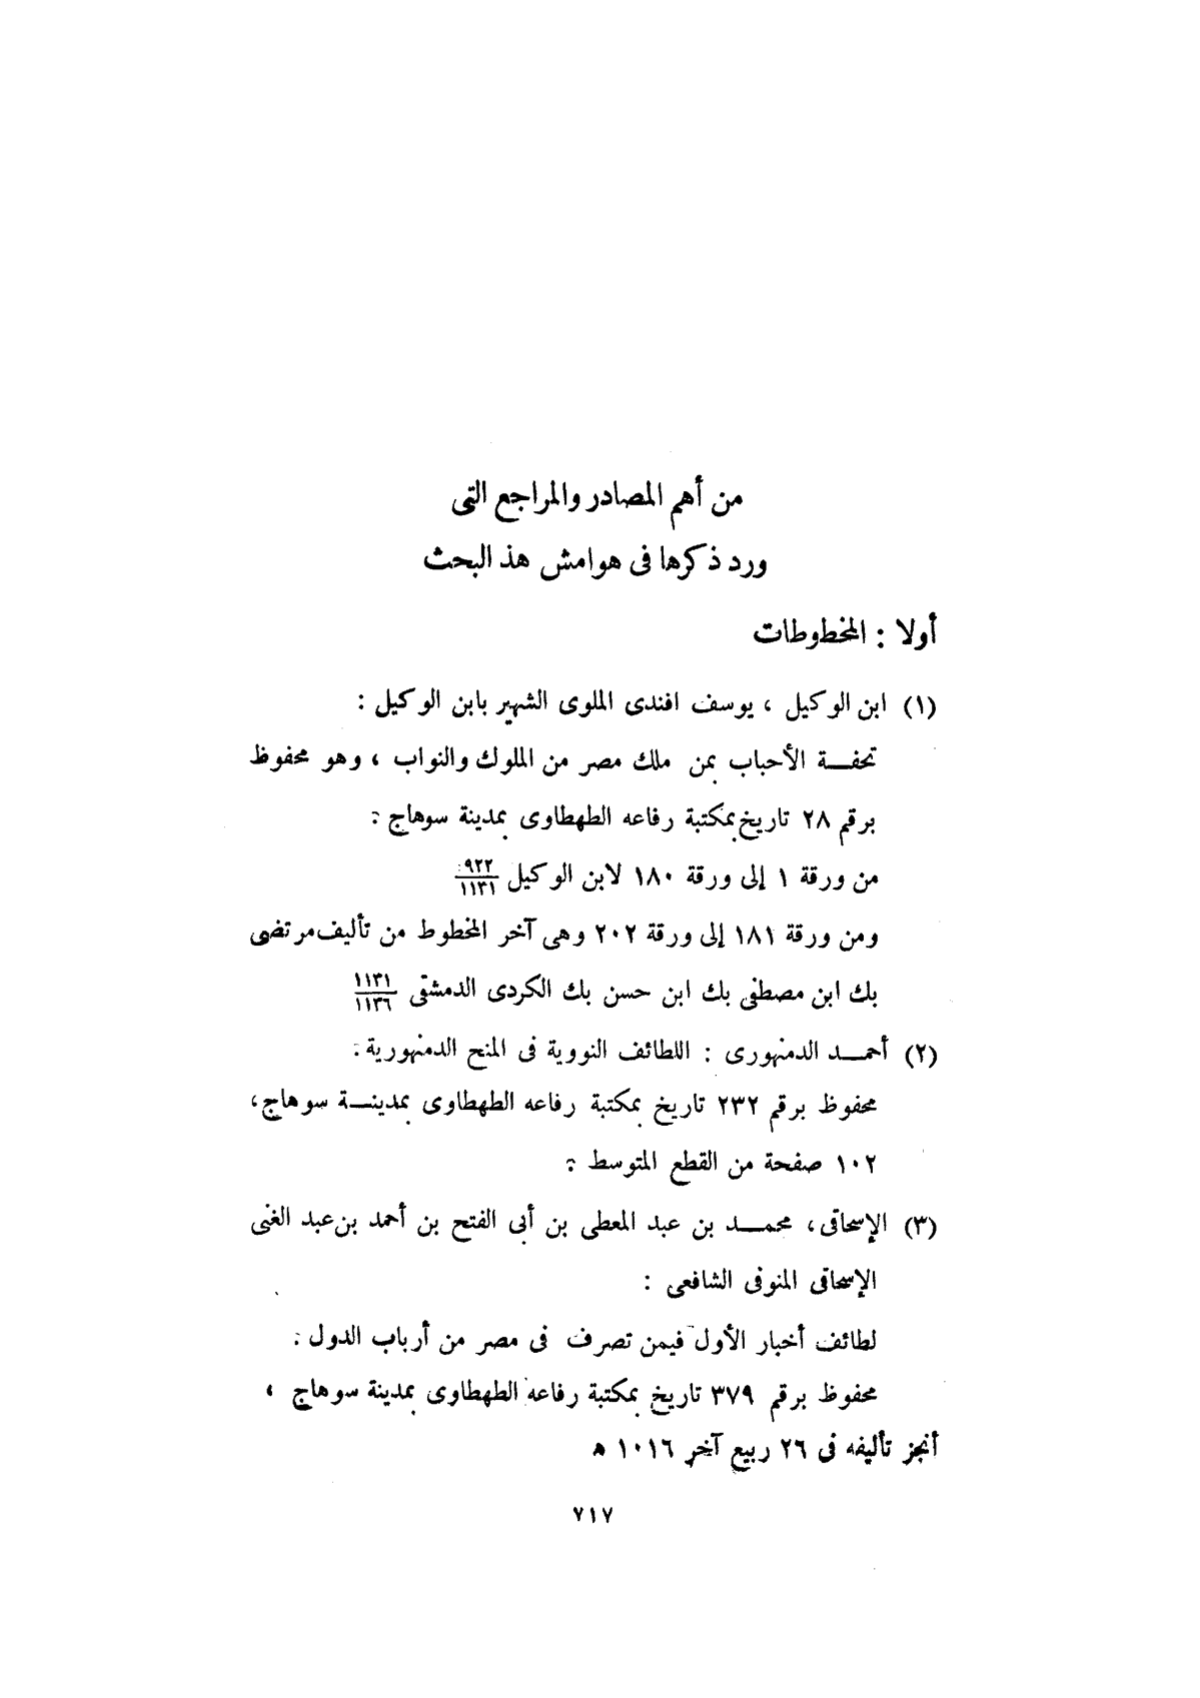 من أهم المصادر والمراجع التى
ورد ذكرها فى هوامش هذ البحث
أولا : المخطوطات
(١) ابن الوكيل ، يوسف افندى الملوى الشهير بابن الوكيل :
تحفـــة الأحباب بمن ملك مصر من الملوك والنواب ، وهو محفوظ
برقم ٢٨ تاريخ بمكتبة رفاعه الطهطاوى بمدينة سوهاج :
من ورقة ١ إلى ورقة ١٨٠ لابن الوكيل ٩٢٢/١١٣١
ومن ورقة ١٨١ إلى ورقة ٢٠٢ وهى آخر المخطوط من تأليف مرتضى
بك ابن مصطفى بك ابن حسن بك الكردى الدمشقى ١١٣١/١١٣٦
(٢) أحمـــد الدمنهورى : اللطائف النووية فى المنح الدمنهورية :
محفوظ برقم ٢٣٢ تاريخ بمكتبة رفاعه الطهطاوى بمدينـــة سوهاج ،
١٠٢ صفحة من القطع المتوسط :
(٣) الإسحاقى ، محمـــد بن عبد المعطى بن أبى الفتح بن أحمد بن عبد الغنى
الإسحاقى المنوفى الشافعى :
لطائف أخبار الأول فيمن تصرف فى مصر من أرباب الدول :
محفوظ برقم ٣٧٩ تاريخ بمكتبة رفاعه الطهطاوى بمدينة سوهاج ،
أنجز تأليفه فى ٢٦ ربيع آخر ١٠١٦ ه
٧١٧